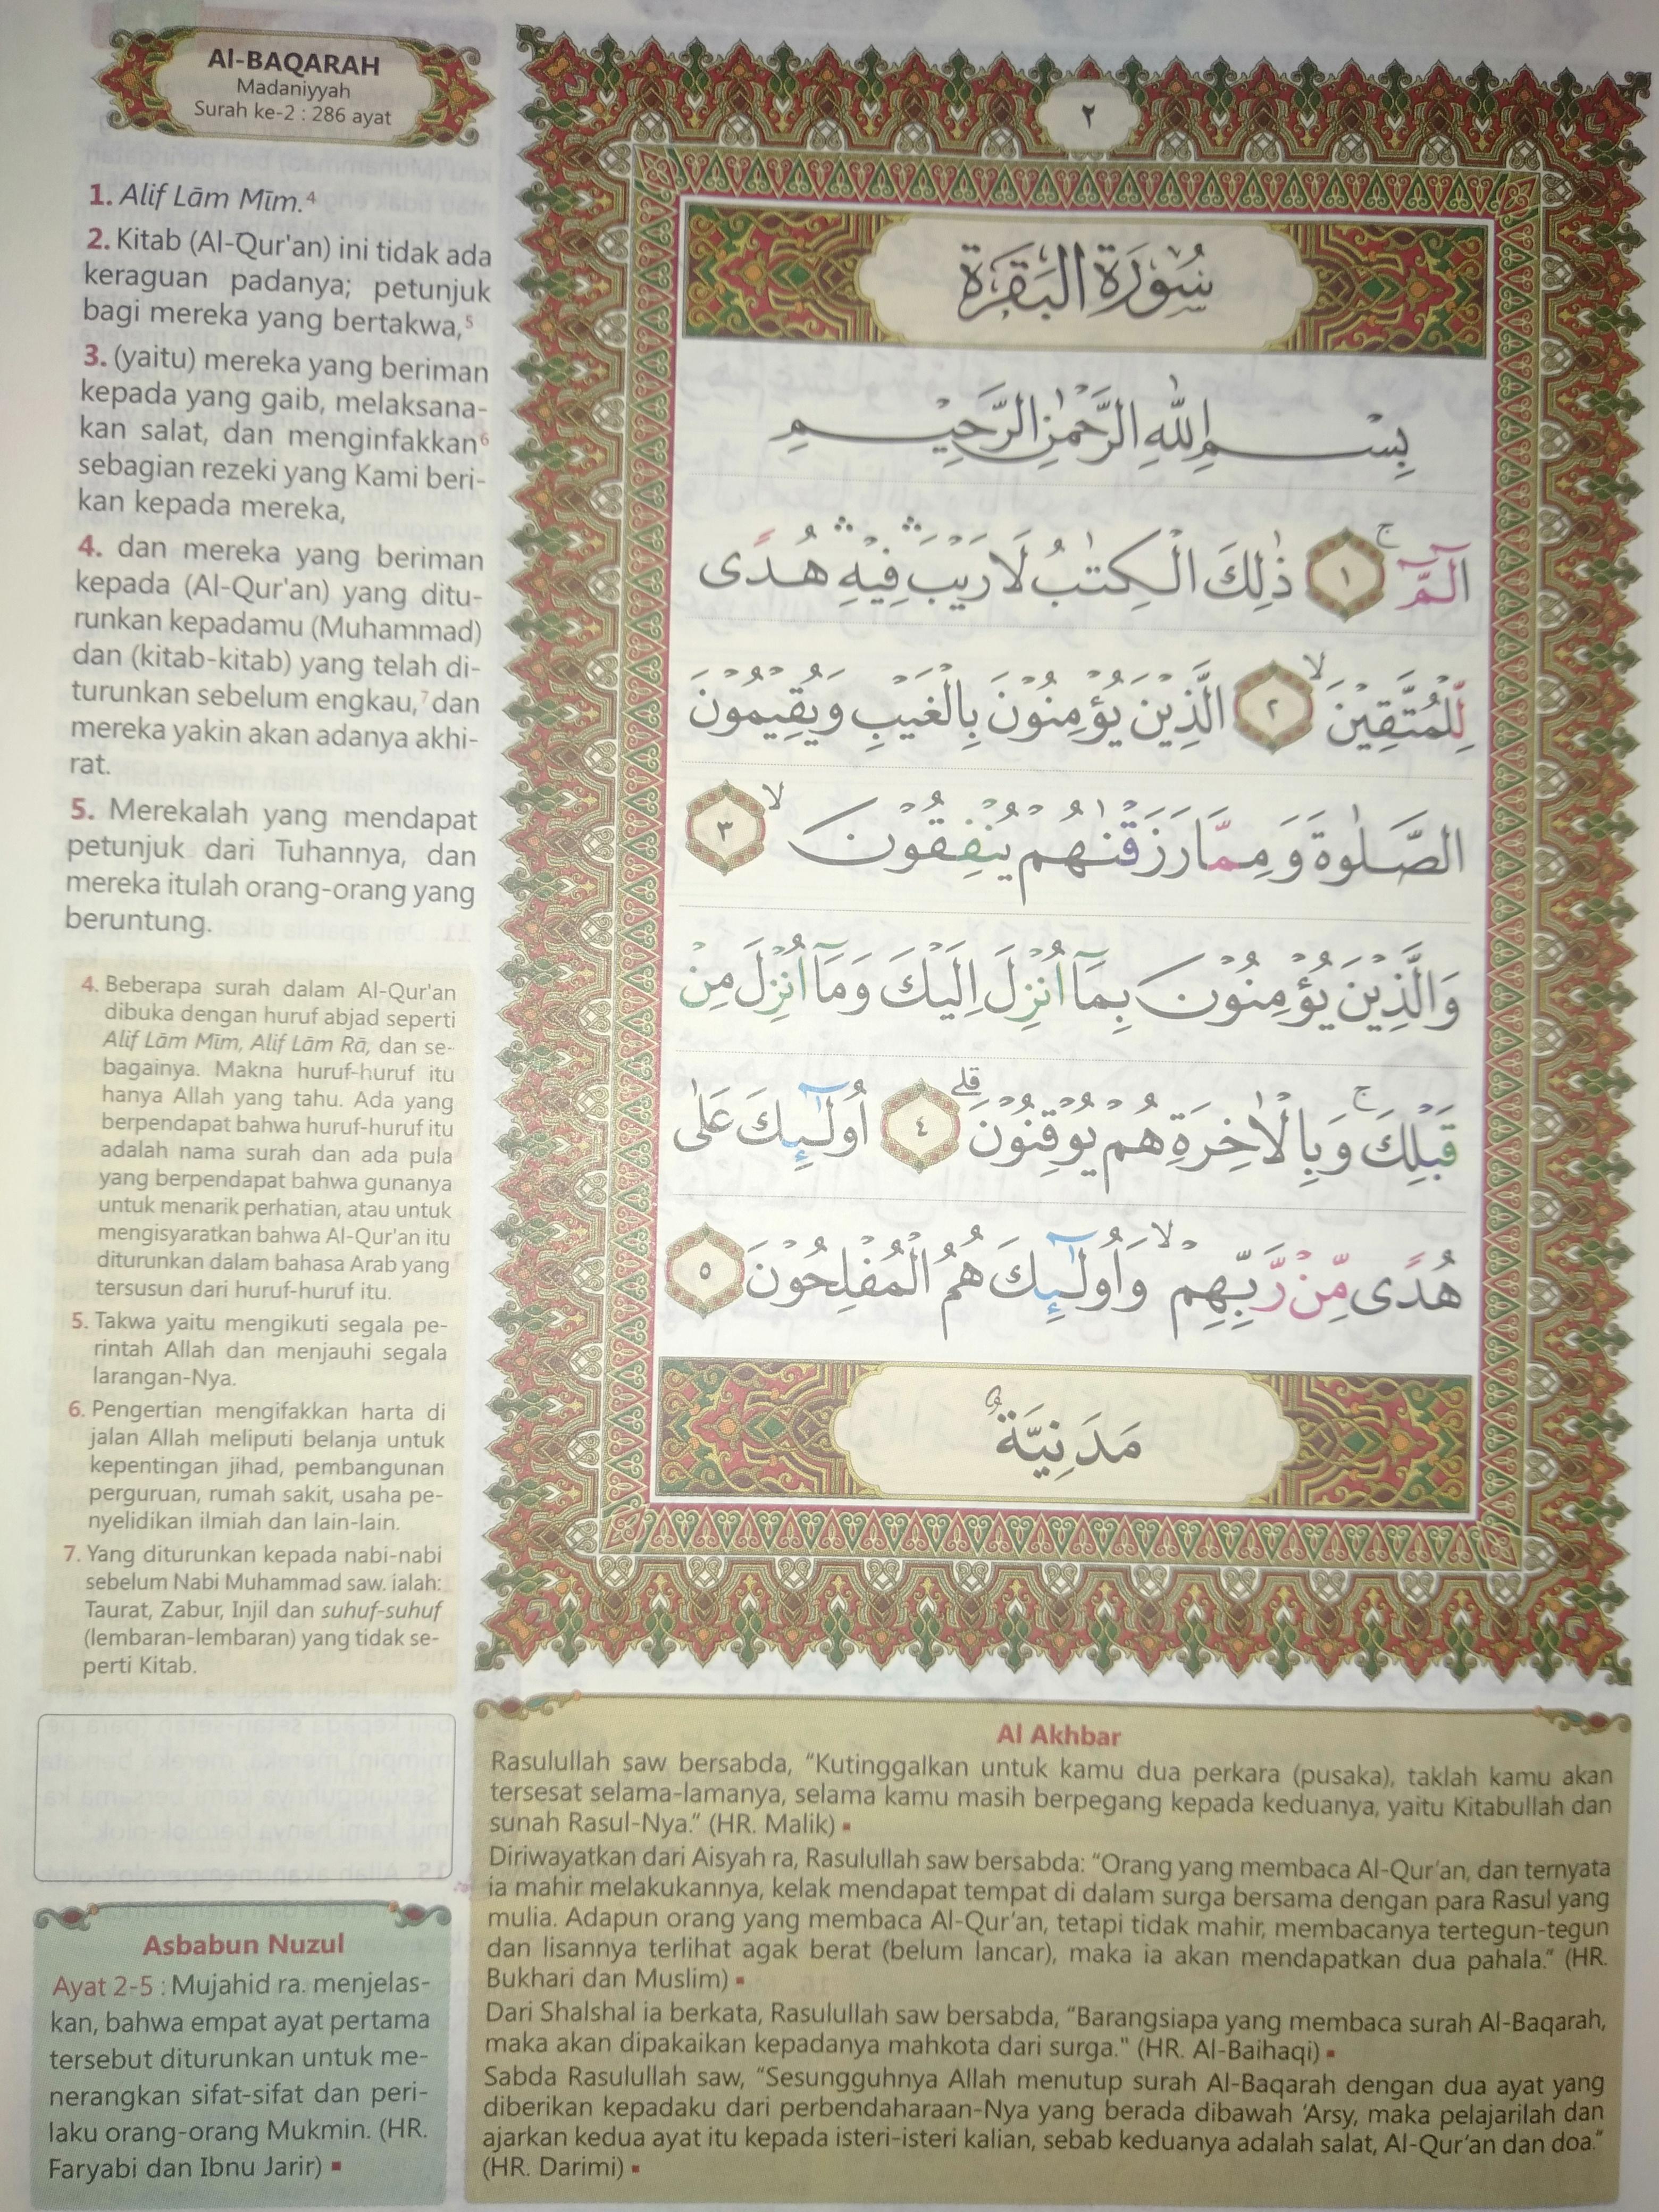 Al-BAQARAH
Madaniyyah
Surah ke-2 : 286 ayat
1. Alif Lām Mīm.⁴
2. Kitab (Al-Qur'an) ini tidak ada
keraguan padanya; petunjuk
bagi mereka yang bertakwa,⁵
3. (yaitu) mereka yang beriman
kepada yang gaib, melaksana-
kan salat, dan menginfakkan⁶
sebagian rezeki yang Kami beri-
kan kepada mereka,
4. dan mereka yang beriman
kepada (Al-Qur'an) yang ditu-
runkan kepadamu (Muhammad)
dan (kitab-kitab) yang telah di-
turunkan sebelum engkau,⁷ dan
mereka yakin akan adanya akhi-
rat.
5. Merekalah yang mendapat
petunjuk dari Tuhannya, dan
mereka itulah orang-orang yang
beruntung.
4. Beberapa surah dalam Al-Qur'an
dibuka dengan huruf abjad seperti
Alif Lām Mīm, Alif Lām Rā, dan se-
bagainya. Makna huruf-huruf itu
hanya Allah yang tahu. Ada yang
berpendapat bahwa huruf-huruf itu
adalah nama surah dan ada pula
yang berpendapat bahwa gunanya
untuk menarik perhatian, atau untuk
mengisyaratkan bahwa Al-Qur'an itu
diturunkan dalam bahasa Arab yang
tersusun dari huruf-huruf itu.
5. Takwa yaitu mengikuti segala pe-
rintah Allah dan menjauhi segala
larangan-Nya.
6. Pengertian mengifakkan harta di
jalan Allah meliputi belanja untuk
kepentingan jihad, pembangunan
perguruan, rumah sakit, usaha pe-
nyelidikan ilmiah dan lain-lain.
7. Yang diturunkan kepada nabi-nabi
sebelum Nabi Muhammad saw. ialah:
Taurat, Zabur, Injil dan suhuf-suhuf
(lembaran-lembaran) yang tidak se-
perti Kitab.
Asbabun Nuzul
Ayat 2-5 : Mujahid ra. menjelas-
kan, bahwa empat ayat pertama
tersebut diturunkan untuk me-
nerangkan sifat-sifat dan peri-
laku orang-orang Mukmin. (HR.
Faryabi dan Ibnu Jarir) ▪
٢
سُوْرَةُ الْبَقَرَة
بِسْمِ اللّٰهِ الرَّحْمٰنِ الرَّحِيْمِ
الۤمّۤ ۚ ١ ذٰلِكَ الْكِتٰبُ لَا رَيْبَ ۛ فِيْهِ ۛ هُدًى
لِّلْمُتَّقِيْنَ ۙ ٢ الَّذِيْنَ يُؤْمِنُوْنَ بِالْغَيْبِ وَيُقِيْمُوْنَ
الصَّلٰوةَ وَمِمَّا رَزَقْنٰهُمْ يُنْفِقُوْنَ ۙ ٣
وَالَّذِيْنَ يُؤْمِنُوْنَ بِمَآ اُنْزِلَ اِلَيْكَ وَمَآ اُنْزِلَ مِنْ
قَبْلِكَ ۚ وَبِالْاٰخِرَةِ هُمْ يُوْقِنُوْنَ ۗ ٤ اُولٰۤىِٕكَ عَلٰى
هُدًى مِّنْ رَّبِّهِمْ ۙ وَاُولٰۤىِٕكَ هُمُ الْمُفْلِحُوْنَ ٥
مَدَنِيَّةٌ
Al Akhbar
Rasulullah saw bersabda, “Kutinggalkan untuk kamu dua perkara (pusaka), taklah kamu akan
tersesat selama-lamanya, selama kamu masih berpegang kepada keduanya, yaitu Kitabullah dan
sunah Rasul-Nya.” (HR. Malik) ▪
Diriwayatkan dari Aisyah ra, Rasulullah saw bersabda: “Orang yang membaca Al-Qur’an, dan ternyata
ia mahir melakukannya, kelak mendapat tempat di dalam surga bersama dengan para Rasul yang
mulia. Adapun orang yang membaca Al-Qur’an, tetapi tidak mahir, membacanya tertegun-tegun
dan lisannya terlihat agak berat (belum lancar), maka ia akan mendapatkan dua pahala.” (HR.
Bukhari dan Muslim) ▪
Dari Shalshal ia berkata, Rasulullah saw bersabda, “Barangsiapa yang membaca surah Al-Baqarah,
maka akan dipakaikan kepadanya mahkota dari surga." (HR. Al-Baihaqi) ▪
Sabda Rasulullah saw, “Sesungguhnya Allah menutup surah Al-Baqarah dengan dua ayat yang
diberikan kepadaku dari perbendaharaan-Nya yang berada dibawah ‘Arsy, maka pelajarilah dan
ajarkan kedua ayat itu kepada isteri-isteri kalian, sebab keduanya adalah salat, Al-Qur’an dan doa.”
(HR. Darimi) ▪